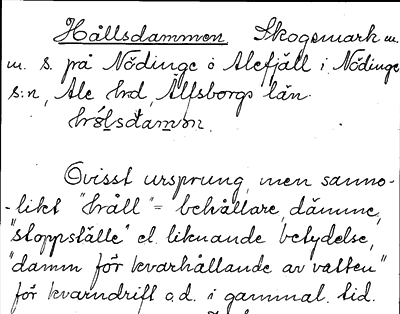 Hållsdammen Skogsmark m.
m. S. på Nödinge ö Alefjäll i Nödinge
s:n, Ale hrd, Älfsborgs län.
hɔ́lsdamɔn.
Ovisst ursprung, men sanno-
-likt "håll" = behållare, dämme,
"stoppställe" el. liknande betydelse,
"damm för kvarhållande av vatten"
för kvarndrift o.d. i gammal tid.